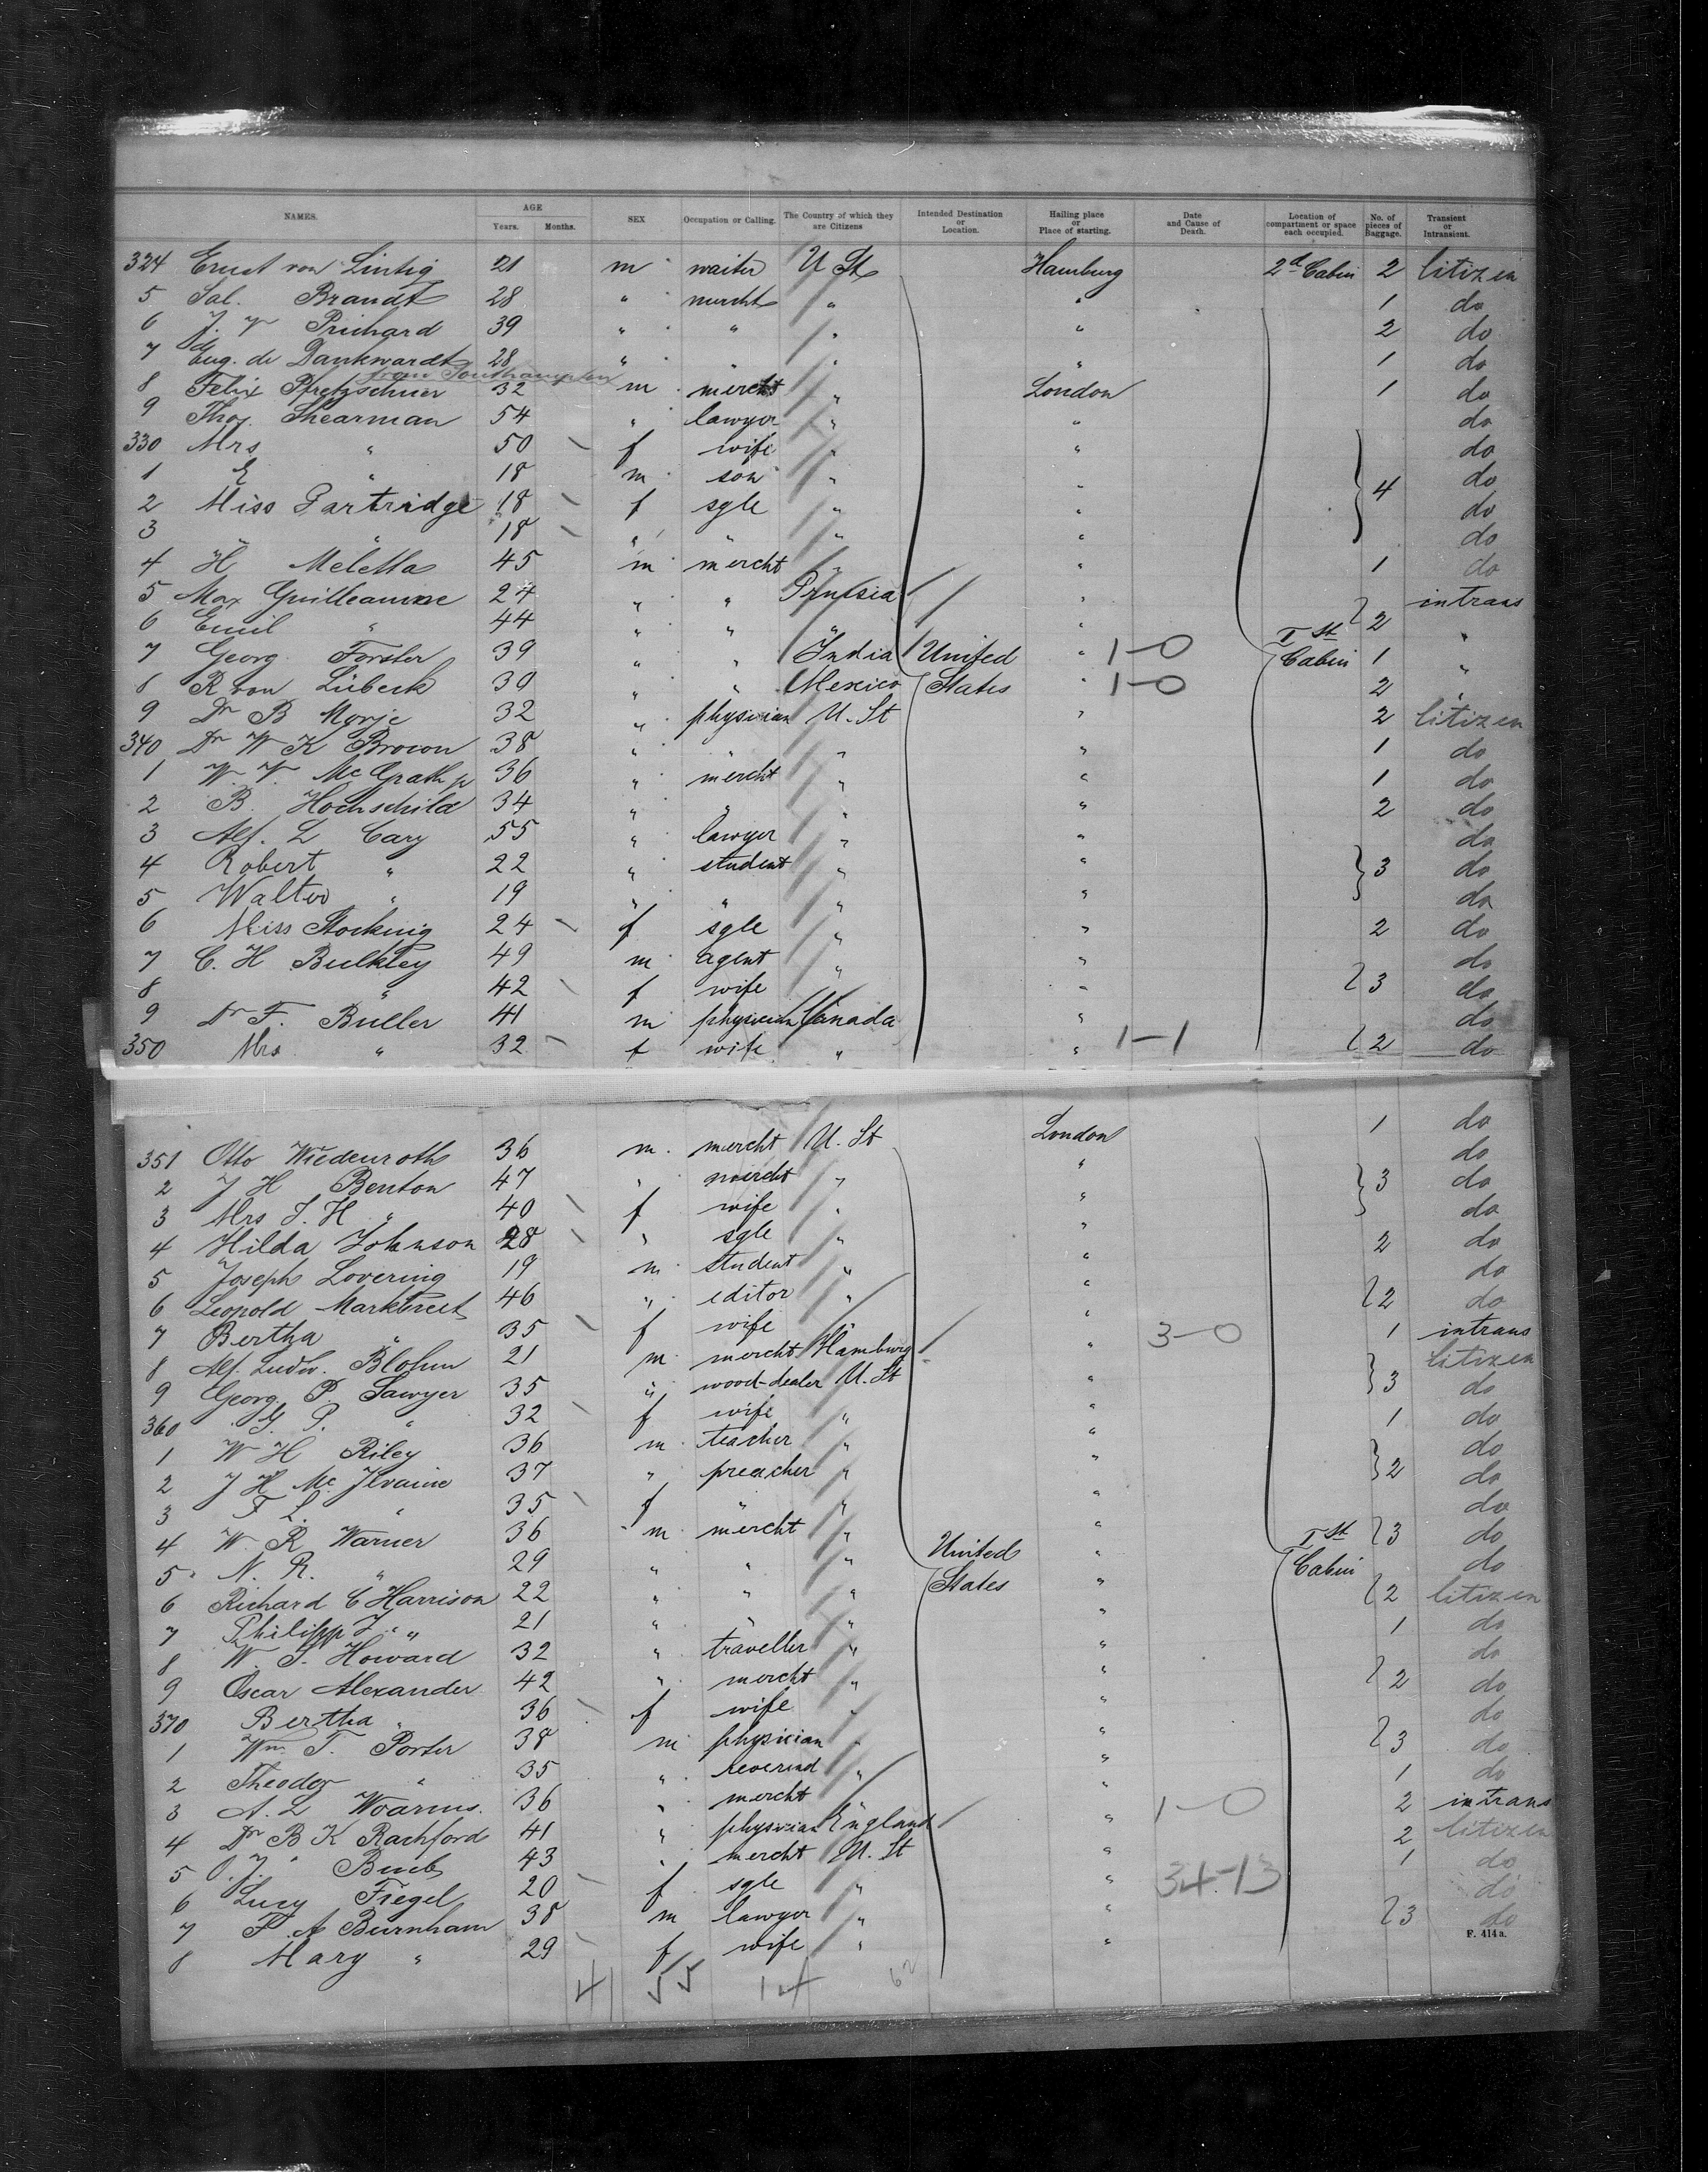 NAMES. AGE Years. Months. SEX Occupation or Calling. The Country of which they are Citizens Intended Destination or Location. Hailing place or Place of starting. Date and Cause of Death. Location of compartment or space each occupied. No. of pieces of Baggage. Transient or Intransient.
324 Ernst von Lintig 21 m waiter U St Hamburg 2d Cabin 2 Citizen
5 Sal. Brandt 28 " mercht " " 1 do
6 Prichard 39 " " " " 2 do
7 Eug. de Dankwardt 28 " " " " 1 do
from Southampton
8 Felix Pfretzschner 32 m mercht " London 1 do
9 Thos. Shearman 54 " lawyer " " do
330 Mrs " 50 f wife " " do
1 E " 18 m son " " do
2 Miss Partridge 18 f sgle " " 4 do
3 " " 18 " " " " do
4 H Meletta 45 m mercht " " 1 do
5 Max Guilleaume 24 " " Prussia " intrans
6 Emil " 44 " " " " 2 "
7 Georg Forster 39 " " India United " 1-0 I St Cabin 1 "
8 R von Lübeck 39 " " Mexico States " 1-0 2 "
9 Dr B 32 " physician U. St " 2 Citizen
340 Dr W K Brown 38 " " " " 1 do
1 W. V. McGrath jr 36 " mercht " " 1 do
2 B. Hochschild 34 " " " " 2 do
3 Alf. L Cary 55 " lawyer " " do
4 Robert " 22 " student " " 3 do
5 Walter " 19 " " " " do
6 Miss Stocking 24 f sgle " " 2 do
7 C. H Bulkley 49 m agent " " do
8 " 42 f wife " 3 do
9 Dr F. Buller 41 m physician Canada " do
350 Mrs " 32 f wife " " 1-1 2 do
351 Otto Wiedenroth 36 m. mercht U. St London 1 do
2 J H Benton 47 " mercht " " do
3 Mrs J. H " 40 f wife " " 3 do
4 Hilda Johnson 28 " sgle " " do
5 Joseph Lovering 19 m student " " 2 do
6 Leopold Markbreit 46 " editor " " do
7 Bertha " 35 f wife " " 2 do
8 Alf. Ludw. Blohm 21 m mercht Hamburg " 3-0 1 intrans
9 Georg P Sawyer 35 " wood-dealer U. St " Citizen
360 G. P. " 32 f wife " " 3 do
1 W H Riley 36 m teacher " " 1 do
2 J H McIlvaine 37 " preacher " " do
3 F L. " 35 f " " " 2 do
4 W. R Warner 36 m mercht " " do
5 N. R. " 29 " " " United " I St 3 do
6 Richard C Harrison 22 " " " States " Cabin do
7 Philipp L " 21 " " " " 2 Citizen
8 W. T. Howard 32 " traveller " " 1 do
9 Oscar Alexander 42 " mercht " " do
370 Bertha " 36 f wife " " 2 do
1 Wm. T. Porter 38 m physician " " do
2 Theodor " 35 " reverend " " 3 do
3 A. L Woarms. 36 " mercht " " 1 do
4 Dr B K Rachford 41 " physician England " 1-0 2 intrans
5 " 43 " mercht U. St " 2 Citizen
6 Lucy Fiegel 20 f sgle " " 34-13 1 do
7 F. A Burnham 38 m lawyer " " do
8 Mary " 29 f wife " " 3 do
F. 414a.
41 55 14 62